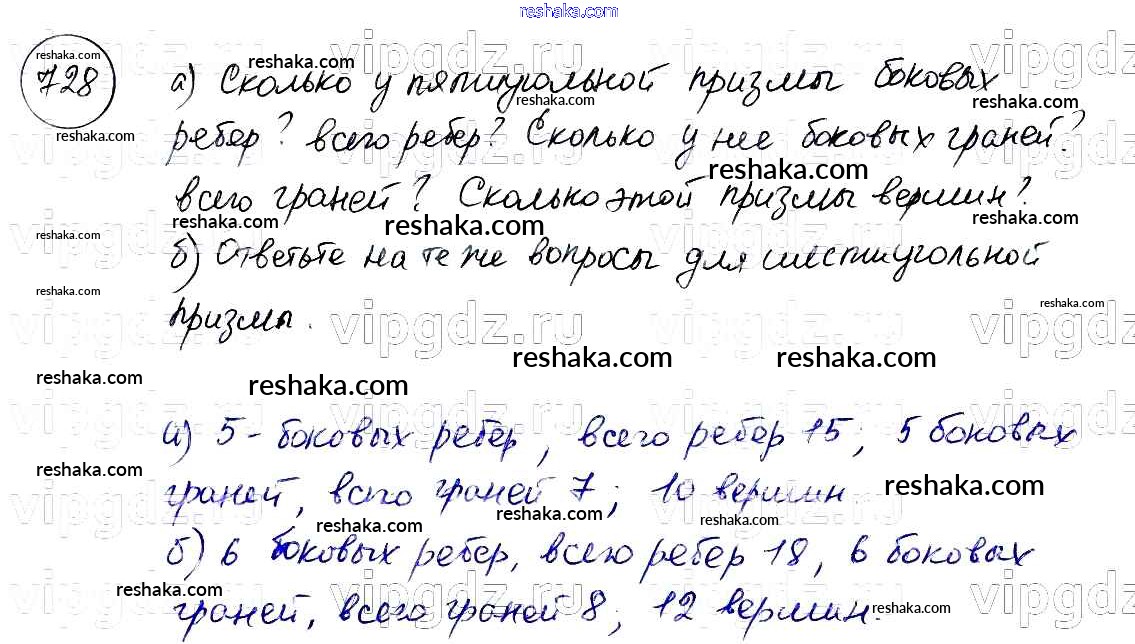 reshaka.com
728
а) Сколько у пятиугольной призмы боковых
ребер? всего ребер? Сколько у нее боковых граней?
всего граней? Сколько этой призмы вершин?
б) Ответьте на те же вопросы для шестиугольной
призмы.
а) 5 - боковых ребер, всего ребер 15; 5 боковых
граней, всего граней 7; 10 вершин.
б) 6 боковых ребер, всего ребер 18, 6 боковых
граней, всего граней 8; 12 вершин.